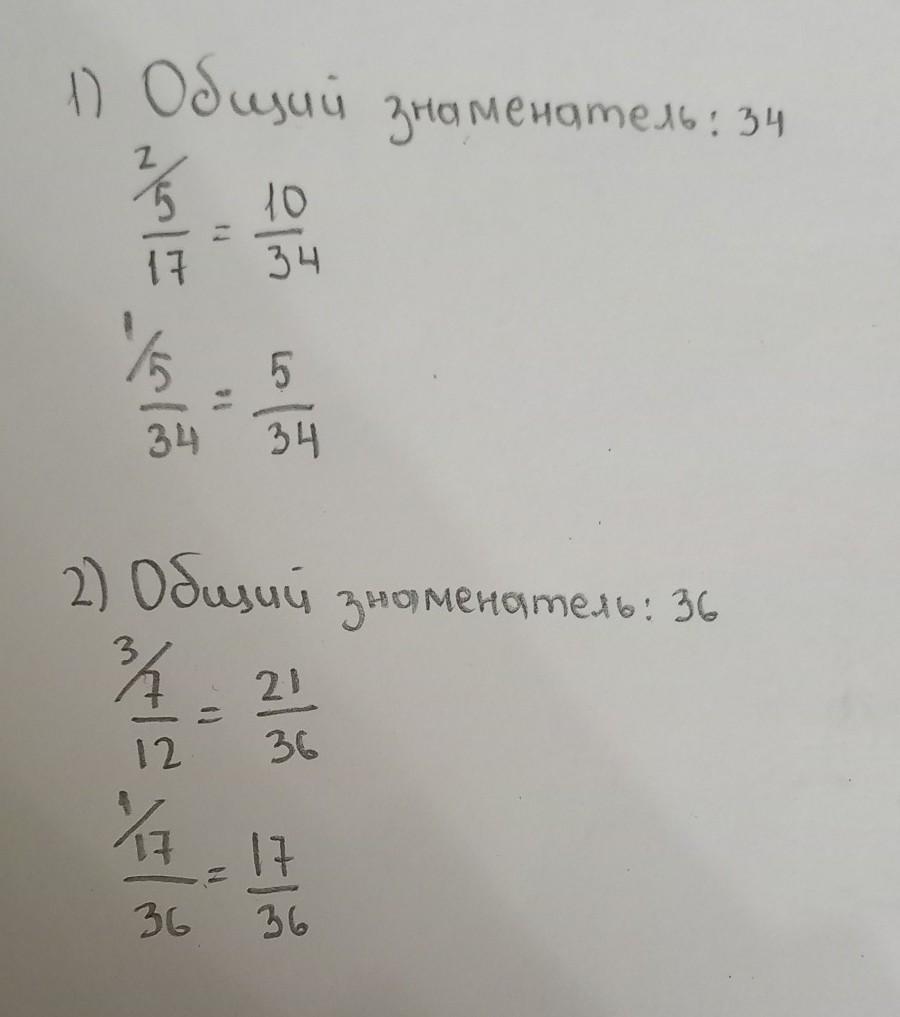 1) Общий знаменатель: 34
2/
5/17 = 10/34
1/
5/34 = 5/34
2) Общий знаменатель: 36
3/
7/12 = 21/36
1/
17/36 = 17/36